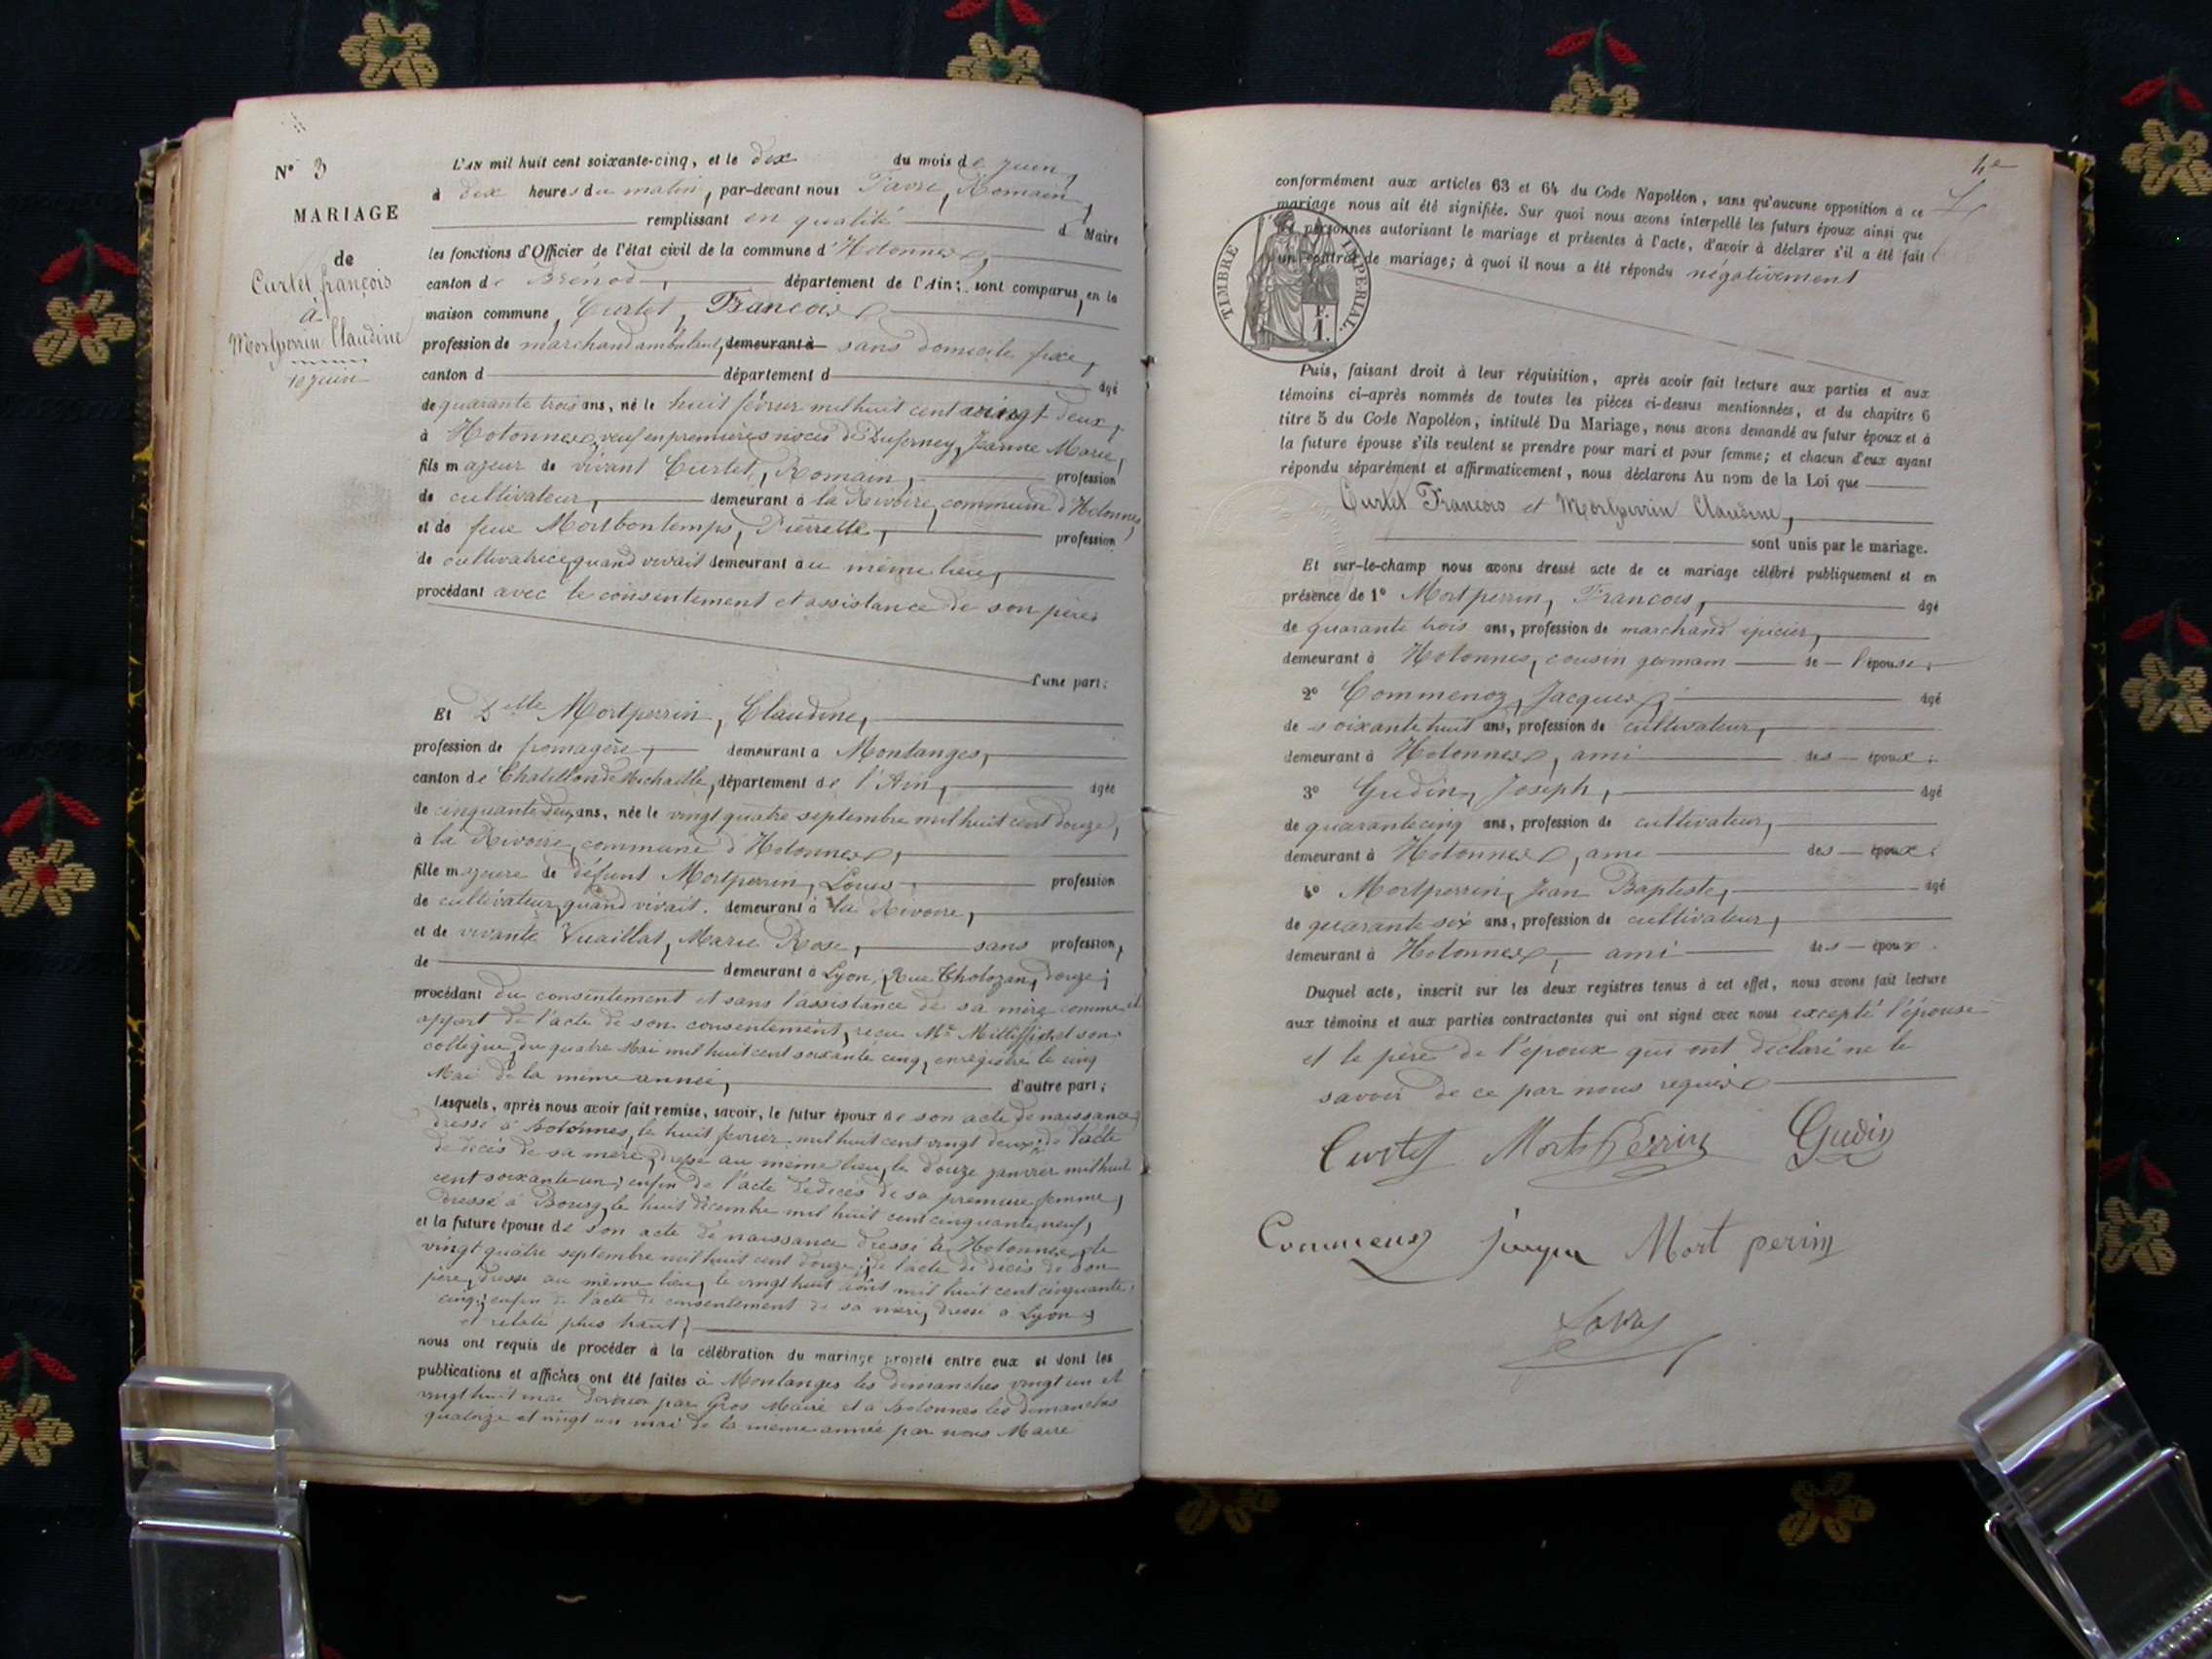 N° 3
MARIAGE
de
Curtet françois
à
Mortperrin Claudine
10 juin
L'AN mil huit cent soixante-cinq, et le dix du mois de juin,
à dix heures du matin, par-devant nous Favre, Romain,
remplissant en qualité d Maire
les fonctions d'Officier de l'état civil de la commune d'Hotonnes,
canton de Brénod, département de l'Ain; sont comparus, en la
maison commune, Curtet, François
profession de marchand ambulant, demeurant à sans domicile fixe,
canton d département d âgé
de quarante trois ans, né le huit février mil huit cent vingt deux,
à Hotonnes, veuf en premières noces de Duferney, Jeanne Marie,
fils majeur de vivant Curtet, Romain, profession
de cultivateur, demeurant à la Rivoire, commune d'Hotonnes,
et de feue Mortbontemps, Pierrette, profession
de cultivatrice, quand vivait demeurant au même lieu,
procédant avec le consentement et assistance de son père
d'une part;
Et Delle Mortperrin, Claudine,
profession de fromagère, demeurant à Montanges,
canton de Chatillon de Michaille, département de l'Ain, âgée
de cinquante deux ans, née le vingt quatre septembre mil huit cent douze,
à la Rivoire, commune d'Hotonnes,
fille majeure de défunt Mortperrin, Louis, profession
de cultivateur, quand vivait. demeurant à la Rivoire,
et de vivante Vuaillat, Marie Rose, sans profession,
de demeurant à Lyon, Rue Tholozan, douze;
procédant du consentement et sans l'assistance de sa mère comme il
appert de l'acte de son consentement, reçu Me son
collègue, du quatre Mai mil huit cent soixante cinq, enregistré le cinq
Mai de la même année, d'autre part;
Lesquels, après nous avoir fait remise, savoir, le futur époux de son acte de naissance
dressé à hotonnes, le huit février mil huit cent vingt deux; de l'acte
de décès de sa mère, dressé au même lieu, le douze janvier mil huit
cent soixante un; enfin de l'acte de décès de sa première femme,
dressé à Bourg, le huit décembre mil huit cent cinquante neuf,
et la future épouse de son acte de naissance dressé à Hotonnes, le
vingt quatre septembre mil huit cent douze; de l'acte de décès de son
père, dressé au même lieu, le vingt huit août mil huit cent cinquante
cinq; enfin de l'acte de consentement de sa mère, dressé à Lyon
et relaté plus haut;
nous ont requis de procéder à la célébration du mariage projeté entre eux et dont les
publications et affiches ont été faites à Montanges les dimanches vingt un et
vingt huit mai dernier par Gros Maire et à hotonnes les dimanches
quatorze et vingt un mai de la même année par nous Maire
conformément aux articles 63 et 64 du Code Napoléon, sans qu'aucune opposition à ce
mariage nous ait été signifiée. Sur quoi nous avons interpellé les futurs époux ainsi que
personnes autorisant le mariage et présentes à l'acte, d'avoir à déclarer s'il a été fait
un contrat de mariage; à quoi il nous a été répondu négativement
TIMBRE IMPERIAL.
F. 1.
Puis, faisant droit à leur réquisition, après avoir fait lecture aux parties et aux
témoins ci-après nommés de toutes les pièces ci-dessus mentionnées, et du chapitre 6
titre 5 du Code Napoléon, intitulé Du Mariage, nous avons demandé au futur époux et à
la future épouse s'ils veulent se prendre pour mari et pour femme; et chacun d'eux ayant
répondu séparément et affirmativement, nous déclarons Au nom de la Loi que
Curtet François et Mortperrin Claudine,
sont unis par le mariage.
Et sur-le-champ nous avons dressé acte de ce mariage célébré publiquement et en
présence de 1° Mortperrin, François, âgé
de quarante trois ans, profession de marchand épicier,
demeurant à Hotonnes, cousin germain de l'épouse;
2° Commenoz, Jacques, âgé
de soixante huit ans, profession de cultivateur,
demeurant à Hotonnes, ami des époux;
3° Gudin, Joseph, âgé
de quarante cinq ans, profession de cultivateur,
demeurant à Hotonnes, ami des époux;
4° Mortperrin, Jean Baptiste, âgé
de quarante six ans, profession de cultivateur,
demeurant à Hotonnes, ami des époux.
Duquel acte, inscrit sur les deux registres tenus à cet effet, nous avons fait lecture
aux témoins et aux parties contractantes qui ont signé avec nous excepté l'épouse
et le père de l'époux qui ont déclaré ne le
savoir de ce par nous requis
Curtet Mort Perrin Gudin
Mort perin